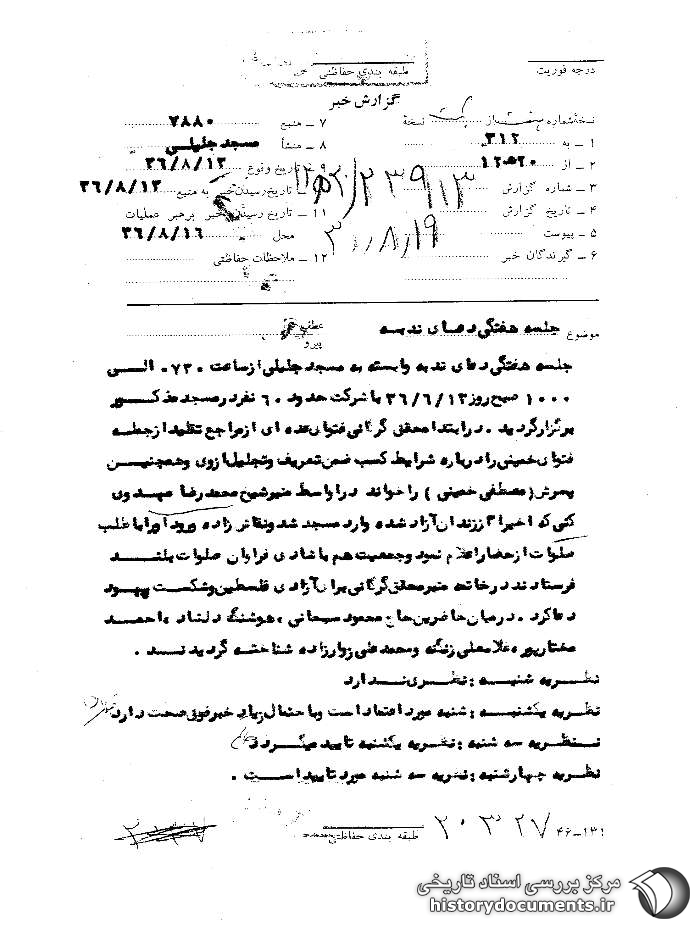 درجه فوریت
طبقه بندی حفاظتی
گزارش خبر
نسخهٔ شماره هشت از یک نسخه
۱ ـ به ۳۱۲
۲ ـ از ۲۰ه۱۲
۳ ـ شماره گزارش
۴ ـ تاریخ گزارش ۳۶/۸/۱۹
۵ ـ پیوست
۶ ـ گیرندگان خبر
۷ ـ منبع ۷۸۸۰
۸ ـ منشأ مسجد جلیلی
۹ ـ تاریخ وقوع ۳۶/۸/۱۳
۱۰ ـ تاریخ رسیدن خبر به منبع ۳۶/۸/۱۳
۱۱ ـ تاریخ رسیدن خبر برهبر عملیات
محل ۳۶/۸/۱۶
۱۲ ـ ملاحظات حفاظتی
موضوع جلسه هفتگی دعای ندبه
عطف
پیرو
جلسه هفتگی دعای ندبه وابسته به مسجد جلیلی از ساعت ۰۷۳۰ الی
۱۰۰۰ صبح روز ۳۶/۶/۱۳ با شرکت حدود ۶۰ نفر در مسجد مذکور
برگزار گردید . در ابتدا محقق گرگانی فتوای عده ای از مراجع تقلید از جمله
فتوای خمینی را درباره شرایط کسب ضمن تعریف و تجلیل از وی و همچنین
پسرش ( مصطفی خمینی ) را خواند در اواسط منبر شیخ محمد رضا مهدوی
کنی که اخیرا از زندان آزاد شده وارد مسجد شد و نقاتر زاده ورود او را با طلب
صلوات از حضار اعلام نمود و جمعیت هم با شادی فراوان صلوات بلند
فرستادند در خاتمه منبر محقق گرگانی برای آزادی فلسطین و شکست یهود
دعا کرد . در میان حاضرین حاج محمود سبحانی ، هوشنگ دلشاد ، احمد
مختارپور ، غلامعلی زنگنه و محمد علی زوارزاده شناخته گردیدند .
نظریه شنبه : نظری ندارد
نظریه یکشنبه : شنبه مورد اعتماد است و با احتمال زیاد خبر فوق صحت دارد
نظریه سه شنبه : نظریه یکشنبه تایید میگردد
نظریه چهارشنبه : نظریه سه شنبه مورد تایید است .
طبقه بندی حفاظتی
۲۰۳۲۷
۴۶ـ۱۳۱
مرکز بررسی اسناد تاریخی
historydocuments.ir